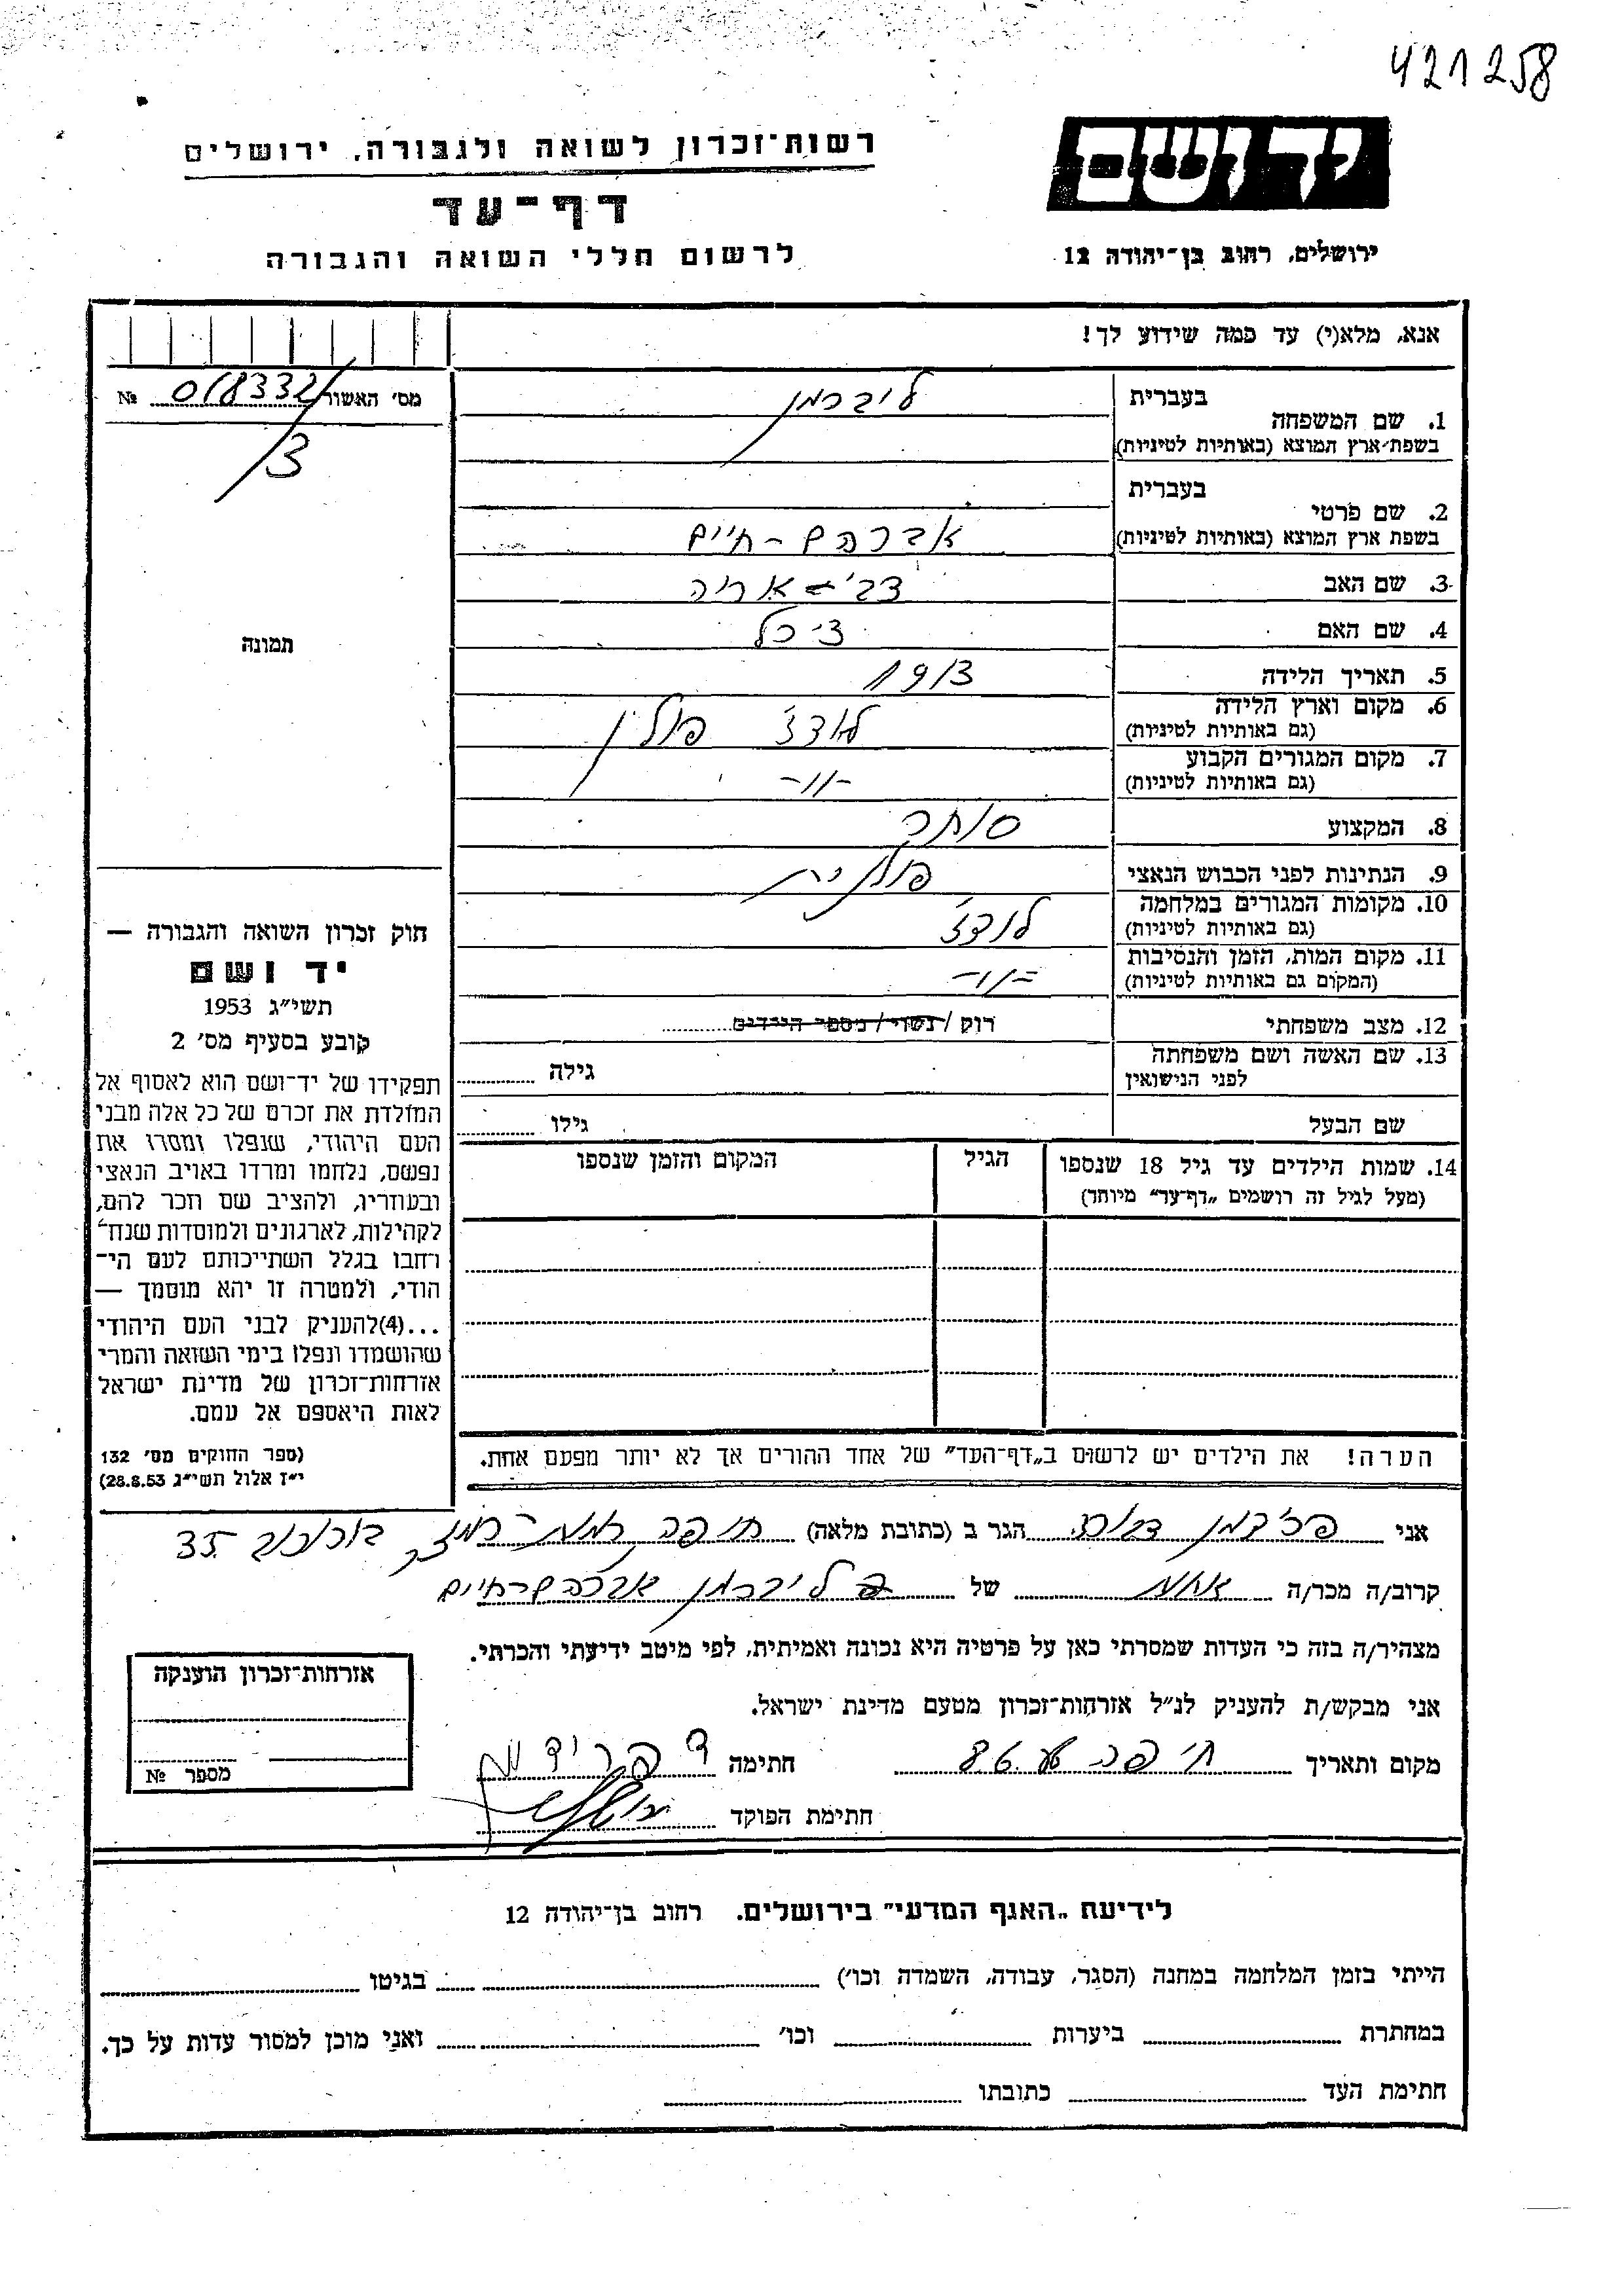 421258
רשות־זכרון לשואה ולגבורה, ירושלים
דף־עד
לרשום חללי השואה והגבורה
יד ושם
ירושלים, רחוב בן־יהודה 12
אנא, מלא(י) עד כמה שידוע לך!
מס׳ האשור 018332 №
3
תמונה
1. שם המשפחה
בעברית ליברמן
בשפת־ארץ המוצא (באותיות לטיניות)
2. שם פרטי
בעברית
בשפת ארץ המוצא (באותיות לטיניות) אברהם - חיים
3. שם האב צבי - אריה
4. שם האם
5. תאריך הלידה 1913
6. מקום וארץ הלידה לודז׳ פולין
(גם באותיות לטיניות)
7. מקום המגורים הקבוע -״-
(גם באותיות לטיניות)
8. המקצוע סוחר
9. הנתינות לפני הכבוש הנאצי פולנית
10. מקומות המגורים במלחמה לודז׳
(גם באותיות לטיניות)
11. מקום המות, הזמן והנסיבות -״-
(המקום גם באותיות לטיניות)
12. מצב משפחתי רוק / נשוי / מספר הילדים
13. שם האשה ושם משפחתה
לפני הנישואין גילה
שם הבעל גילו
14. שמות הילדים עד גיל 18 שנספו הגיל המקום והזמן שנספו
(מעל לגיל זה רושמים „דף־עד״ מיוחד)
חוק זכרון השואה והגבורה —
יד ושם
תשי״ג 1953
קובע בסעיף מס׳ 2
תפקידו של יד־ושם הוא לאסוף אל
המולדת את זכרם של כל אלה מבני
העם היהודי, שנפלו ומסרו את
נפשם, נלחמו ומרדו באויב הנאצי
ובעוזריו, ולהציב שם וזכר להם,
לקהילות, לארגונים ולמוסדות שנח־
רחבו בגלל השתייכותם לעם הי־
הודי, ולמטרה זו יהא מוסמך —
...(4)להעניק לבני העם היהודי
שהושמדו ונפלו בימי השואה והמרי
אזרחות־זכרון של מדינת ישראל
לאות היאספם אל עמם.
(ספר החוקים מס׳ 132
י״ז אלול תשי״ג 28.8.53)
הערה! את הילדים יש לרשום ב„דף־העד״ של אחד ההורים אך לא יותר מפעם אחת.
אני פרידמן הגר ב (כתובת מלאה) חיפה רמת־רמז בורוכוב 35
קרוב/ה מכר/ה אחות של ליברמן אברהם חיים
מצהיר/ה בזה כי העדות שמסרתי כאן על פרטיה היא נכונה ואמיתית, לפי מיטב ידיעתי והכרתי.
אני מבקש/ת להעניק לנ״ל אזרחות־זכרון מטעם מדינת ישראל.
מקום ותאריך חיפה חתימה
חתימת הפוקד
אזרחות־זכרון הוענקה
מספר №
לידיעת „האגף המדעי״ בירושלים. רחוב בן־יהודה 12
הייתי בזמן המלחמה במחנה (הסגר, עבודה, השמדה וכו׳) בגיטו
במחתרת ביערות וכו׳ ואני מוכן למסור עדות על כך.
חתימת העד כתובתו